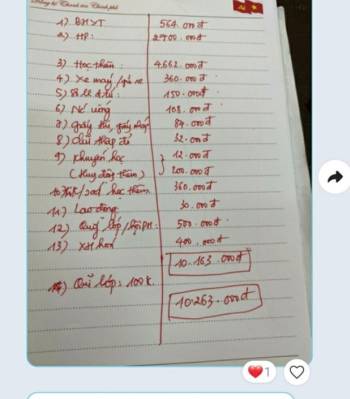 1) BHYT 564.000đ
2) HP: 2900.000đ
3) Học thêm: 4.662.000đ
4) Xe máy / gửi xe 360.000đ
5) Sổ LL đ tử: 150.000đ
6) Nc uống 108.000đ
7) giấy thi, giấy nháp 84.000đ
8) 32.000đ
9) Khuyến học 12.000đ
(Huy động thêm) 200.000đ
học thêm 360.000đ
11) Lao động 30.000đ
12) Quỹ lớp / hội PH: 500.000đ
13) XH hoá 400.000đ
10.163.000đ
Quĩ lớp: 100K.
10.263.000đ
1